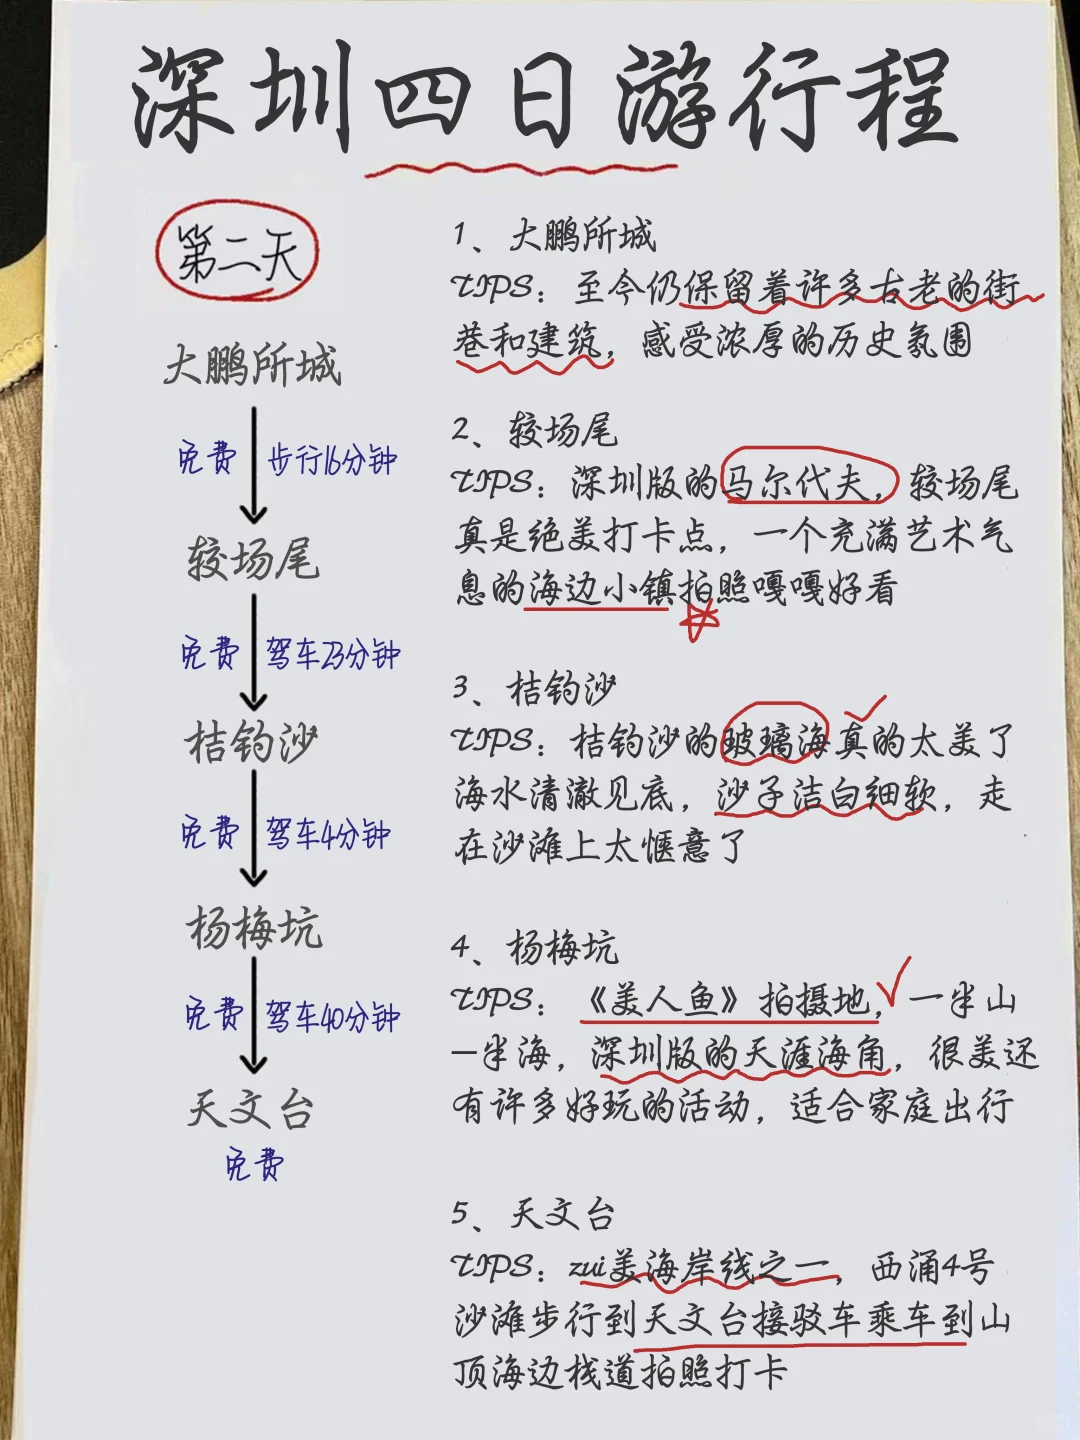 深圳四日游行程
第二天
大鹏所城
免费 步行16分钟
较场尾
免费 驾车23分钟
桔钓沙
免费 驾车4分钟
杨梅坑
免费 驾车40分钟
天文台
免费
1、大鹏所城
TIPS：至今仍保留着许多古老的街
巷和建筑，感受浓厚的历史氛围
2、较场尾
TIPS：深圳版的马尔代夫，较场尾
真是绝美打卡点，一个充满艺术气
息的海边小镇拍照嘎嘎好看
3、桔钓沙
TIPS：桔钓沙的玻璃海真的太美了
海水清澈见底，沙子洁白细软，走
在沙滩上太惬意了
4、杨梅坑
TIPS：《美人鱼》拍摄地，一半山
一半海，深圳版的天涯海角，很美还
有许多好玩的活动，适合家庭出行
5、天文台
TIPS：zui美海岸线之一，西涌4号
沙滩步行到天文台接驳车乘车到山
顶海边栈道拍照打卡